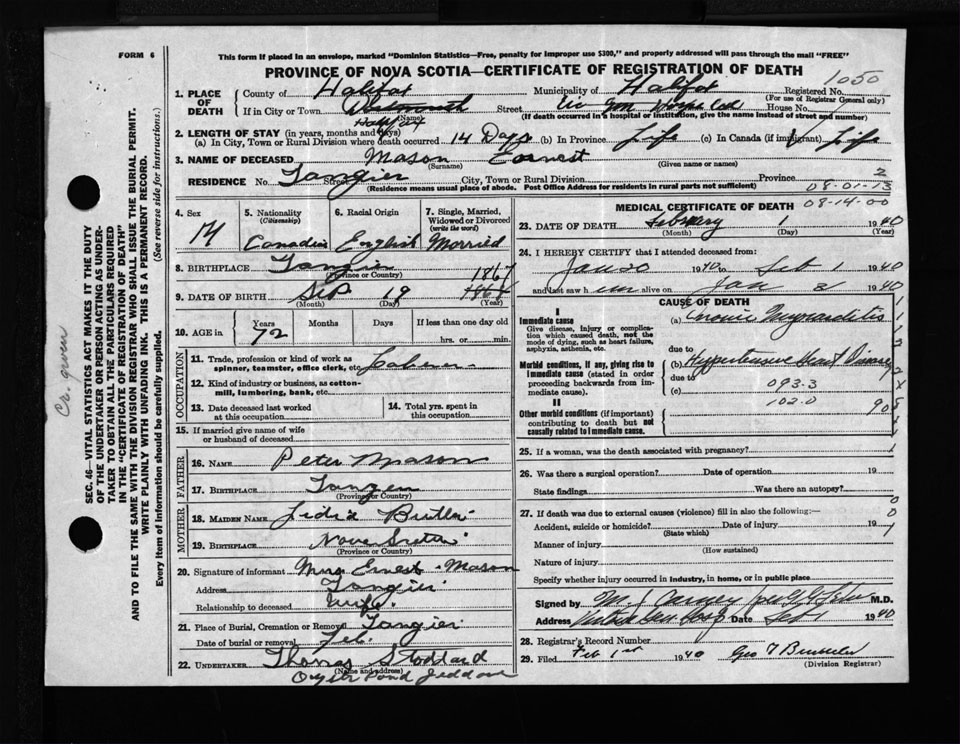 FORM 6
This form if placed in an envelope, marked "Dominion Statistics—Free, penalty for improper use $300," and properly addressed will pass through the mail "FREE"
PROVINCE OF NOVA SCOTIA—CERTIFICATE OF REGISTRATION OF DEATH
1050
1. PLACE OF DEATH
County of Halifax Municipality of Halifax Registered No.
(For use of Registrar General only)
If in City or Town Dartmouth Street Vic Gen House No.
(Name) (If death occurred in a hospital or institution, give the name instead of street and number)
Halifax
2. LENGTH OF STAY (in years, months and days)
(a) In City, Town or Rural Division where death occurred 14 Days (b) In Province Life (c) In Canada (if immigrant) Life
3. NAME OF DECEASED Mason Earnest
(Surname) (Given name or names)
RESIDENCE No. Tangier Street City, Town or Rural Division Province 2
(Residence means usual place of abode. Post Office Address for residents in rural parts not sufficient)
08-01-13
08-14-00
4. Sex M
5. Nationality (Citizenship) Canadian
6. Racial Origin English
7. Single, Married, Widowed or Divorced (write the word) Married
8. BIRTHPLACE Tangier
(Province or Country)
1867
9. DATE OF BIRTH Sep 19
(Month) (Day) (Year)
10. AGE in Years Months Days If less than one day old
72 hrs. or min.
OCCUPATION
11. Trade, profession or kind of work as spinner, teamster, office clerk, etc.
12. Kind of industry or business, as cotton-mill, lumbering, bank, etc.
13. Date deceased last worked at this occupation
14. Total yrs. spent in this occupation
15. If married give name of wife or husband of deceased
FATHER
16. NAME Peter Mason
17. BIRTHPLACE Tangier
(Province or Country)
MOTHER
18. MAIDEN NAME Lidia Butler
19. BIRTHPLACE Nova Scotia
(Province or Country)
20. Signature of informant Mrs Ernest Mason
Address Tangier
Relationship to deceased Wife
21. Place of Burial, Cremation or Removal Tangier
Date of burial or removal Feb.
22. UNDERTAKER Thomas Stoddard
(Name and address)
Oyster Pond Jeddore
MEDICAL CERTIFICATE OF DEATH
23. DATE OF DEATH February 1 1940
(Month) (Day) (Year)
24. I HEREBY CERTIFY that I attended deceased from:
Jan 20 1940 to Feb 1 1940
and last saw him alive on Jan 1940
CAUSE OF DEATH
I
Immediate cause
Give disease, injury or complication which caused death, not the mode of dying, such as heart failure, asphyxia, asthenia, etc.
(a) Chronic Myocarditis
due to
Morbid conditions, if any, giving rise to immediate cause (stated in order proceeding backwards from immediate cause).
(b) Hypertensive Heart Disease
due to
(c) 093.3
102.0
90
II
Other morbid conditions (if important) contributing to death but not causally related to immediate cause.
25. If a woman, was the death associated with pregnancy?
26. Was there a surgical operation? Date of operation 19
State findings Was there an autopsy?
27. If death was due to external causes (violence) fill in also the following:—
Accident, suicide or homicide? Date of injury 19
(State which)
Manner of injury
(How sustained)
Nature of injury
Specify whether injury occurred in industry, in home, or in public place
Signed by M. J. Carney M.D.
Address Victoria Gen. Hosp Date 1940
28. Registrar's Record Number
29. Filed Feb 1st 1940 Geo T
(Division Registrar)
SEC. 46—VITAL STATISTICS ACT MAKES IT THE DUTY
OF THE UNDERTAKER OR PERSON ACTING AS UNDER-
TAKER TO OBTAIN ALL THE PARTICULARS REQUIRED
IN THE "CERTIFICATE OF REGISTRATION OF DEATH"
AND TO FILE THE SAME WITH THE DIVISION REGISTRAR WHO SHALL ISSUE THE BURIAL PERMIT.
WRITE PLAINLY WITH UNFADING INK. THIS IS A PERMANENT RECORD.
Every item of information should be carefully supplied. (See reverse side for instructions.)